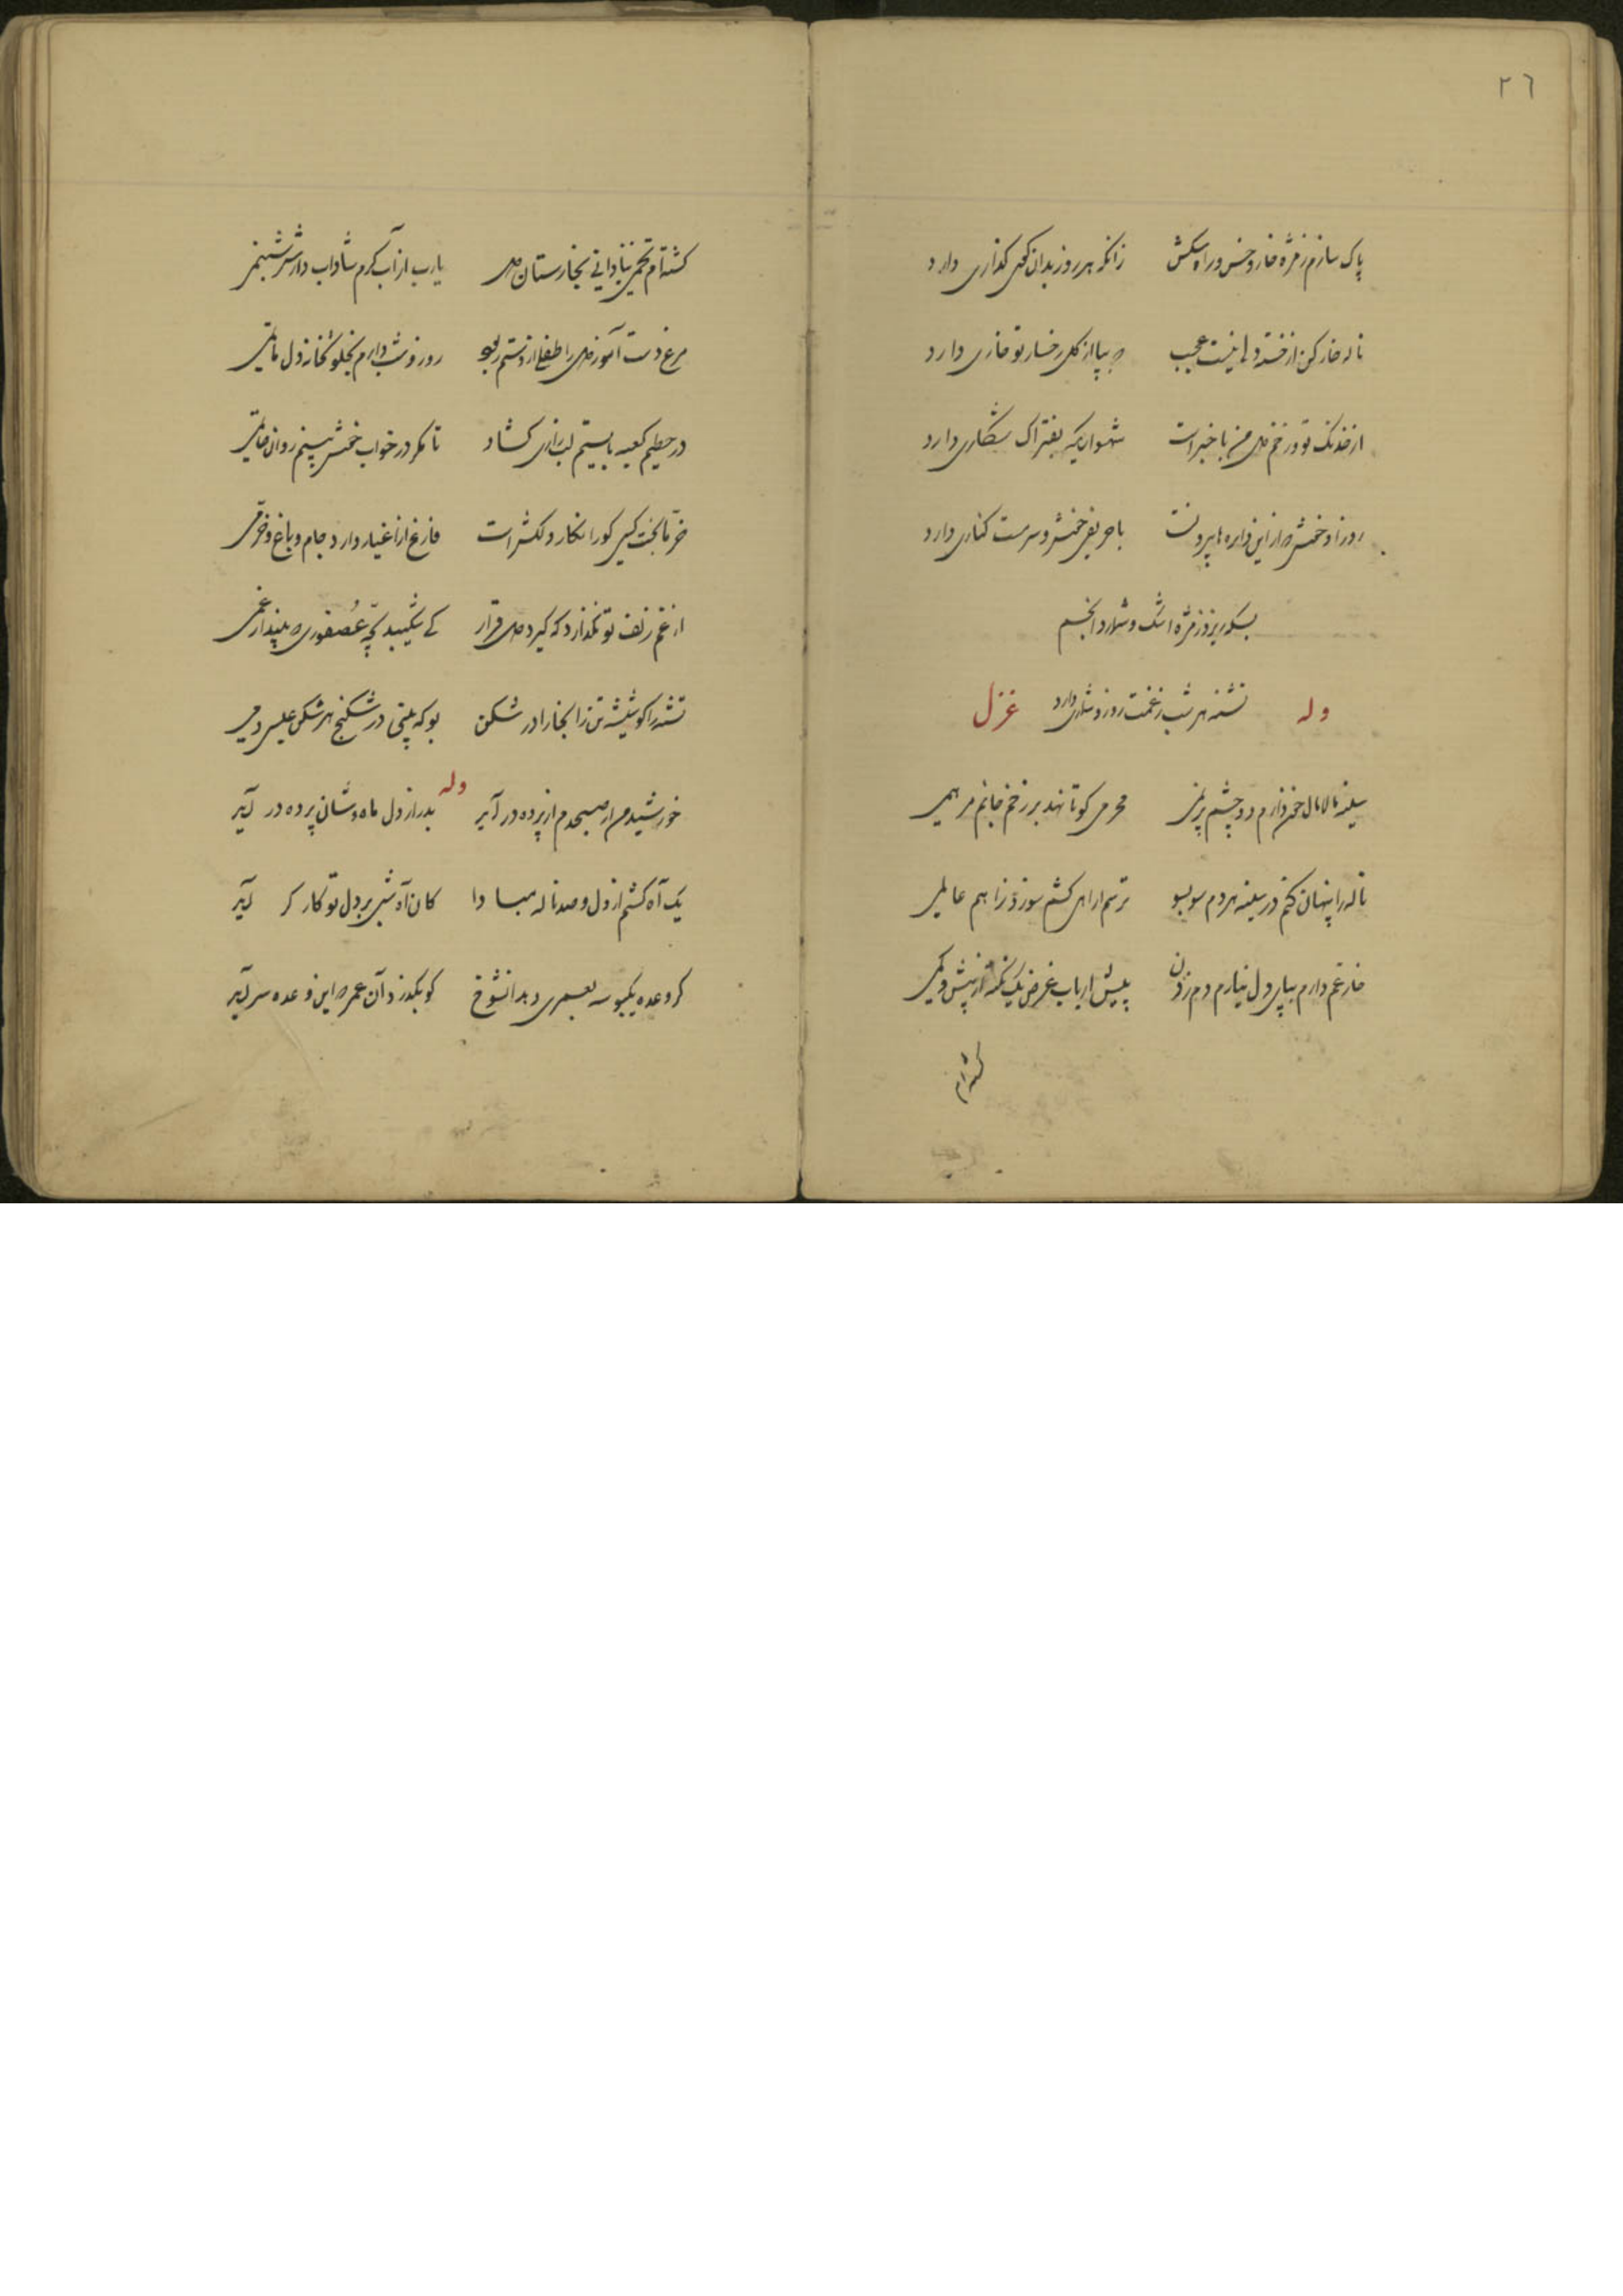 ٢٦
پاک سازم ز مژه خار و خس در راهکش زانکه هر روز بدان کوی گذاری دارد
ناله خارکن از خسته دلها نیست عجب که بپا از گل رخسار تو خاری دارد
از خدنک تو و زخم دل من با خبر است شهسواریکه بفتراک شکاری دارد
روز او خوش که از این دایره ها بیرونست با حریفی خوش و سرمست کناری دارد
بسکه ریزد ز مژه اشک و شمارد انجم
وله تشنه هر شب ز غمت روز شماری دارد غزل
سینه مالامال خون دارم دو چشم پرنمی محرمی کو تا نهد بر زخم جانم مرهمی
ناله را پنهان کنم در سینه هر دم سو بسو ترسم ار آهی کشم سوزد ز آهم عالمی
خار غم دارم بپای دل نیارم دم زدن پیش ارباب غرض یک نکته از بیش و کمی
کشته ام
کشته ام تخمی بنادانی بخارستان دل یارب از آب کرم شاداب دارش شبنمی
مرغ دست آموز دل را طفلی از دستم ربود روز و شب دارم بخلوتخانه دل ماتمی
در حطیم کعبه بایستیم لب زاری کشاد تا مگر در خواب خوش بینم روان حاتمی
خرما بخت کسی کورا نگار دلکش است فارغ از اغیار دارد جام و باغ خرمی
از غم زلف تو نگذارد که گیرد دل قرار کی شکیبد بچه عصفوری که بیند ارقمی
تشنه را کو شیشه تن زانجا را در شکن بو که بینی در شکنج هر شکن عیسی دمی
وله
خورشید من ار صبحدم از پرده در آید بدر از دل ماه وشان پرده در آید
یک آه کشم از دل و صد ناله مبادا کان آه شبی بر دل تو کارگر آید
کرد وعده یکبوسه بعمری دهد آنشوخ کو بگذرد آن عمر که این وعده سر آید